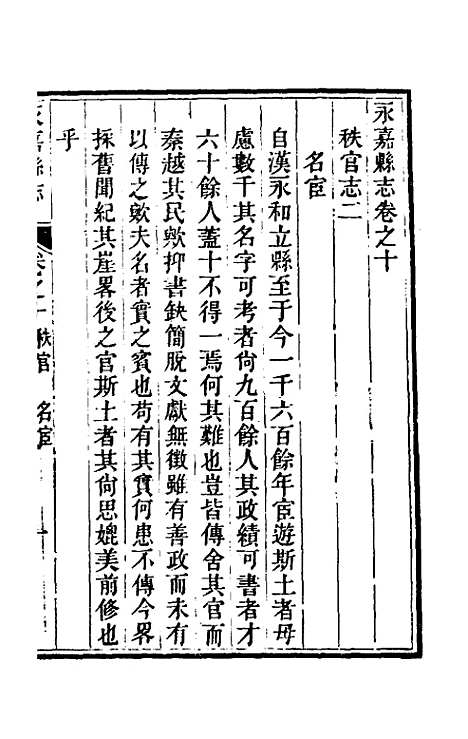 永嘉縣志卷之十
秩官志二
名宦
自漢永和立縣至于今一千六百餘年宦遊斯土者毋
慮數千其名字可考者尙九百餘人其政績可書者才
六十餘人蓋十不得一焉何其難也豈皆傳舍其官而
秦越其民歟抑書缺簡脫文獻無徵雖有善政而未有
以傳之歟夫名者實之賓也苟有其實何患不傳今畧
採舊聞紀其崖畧後之官斯土者其尙思媲美前修也
乎
永嘉縣志
卷之十 秩官 名宦 一